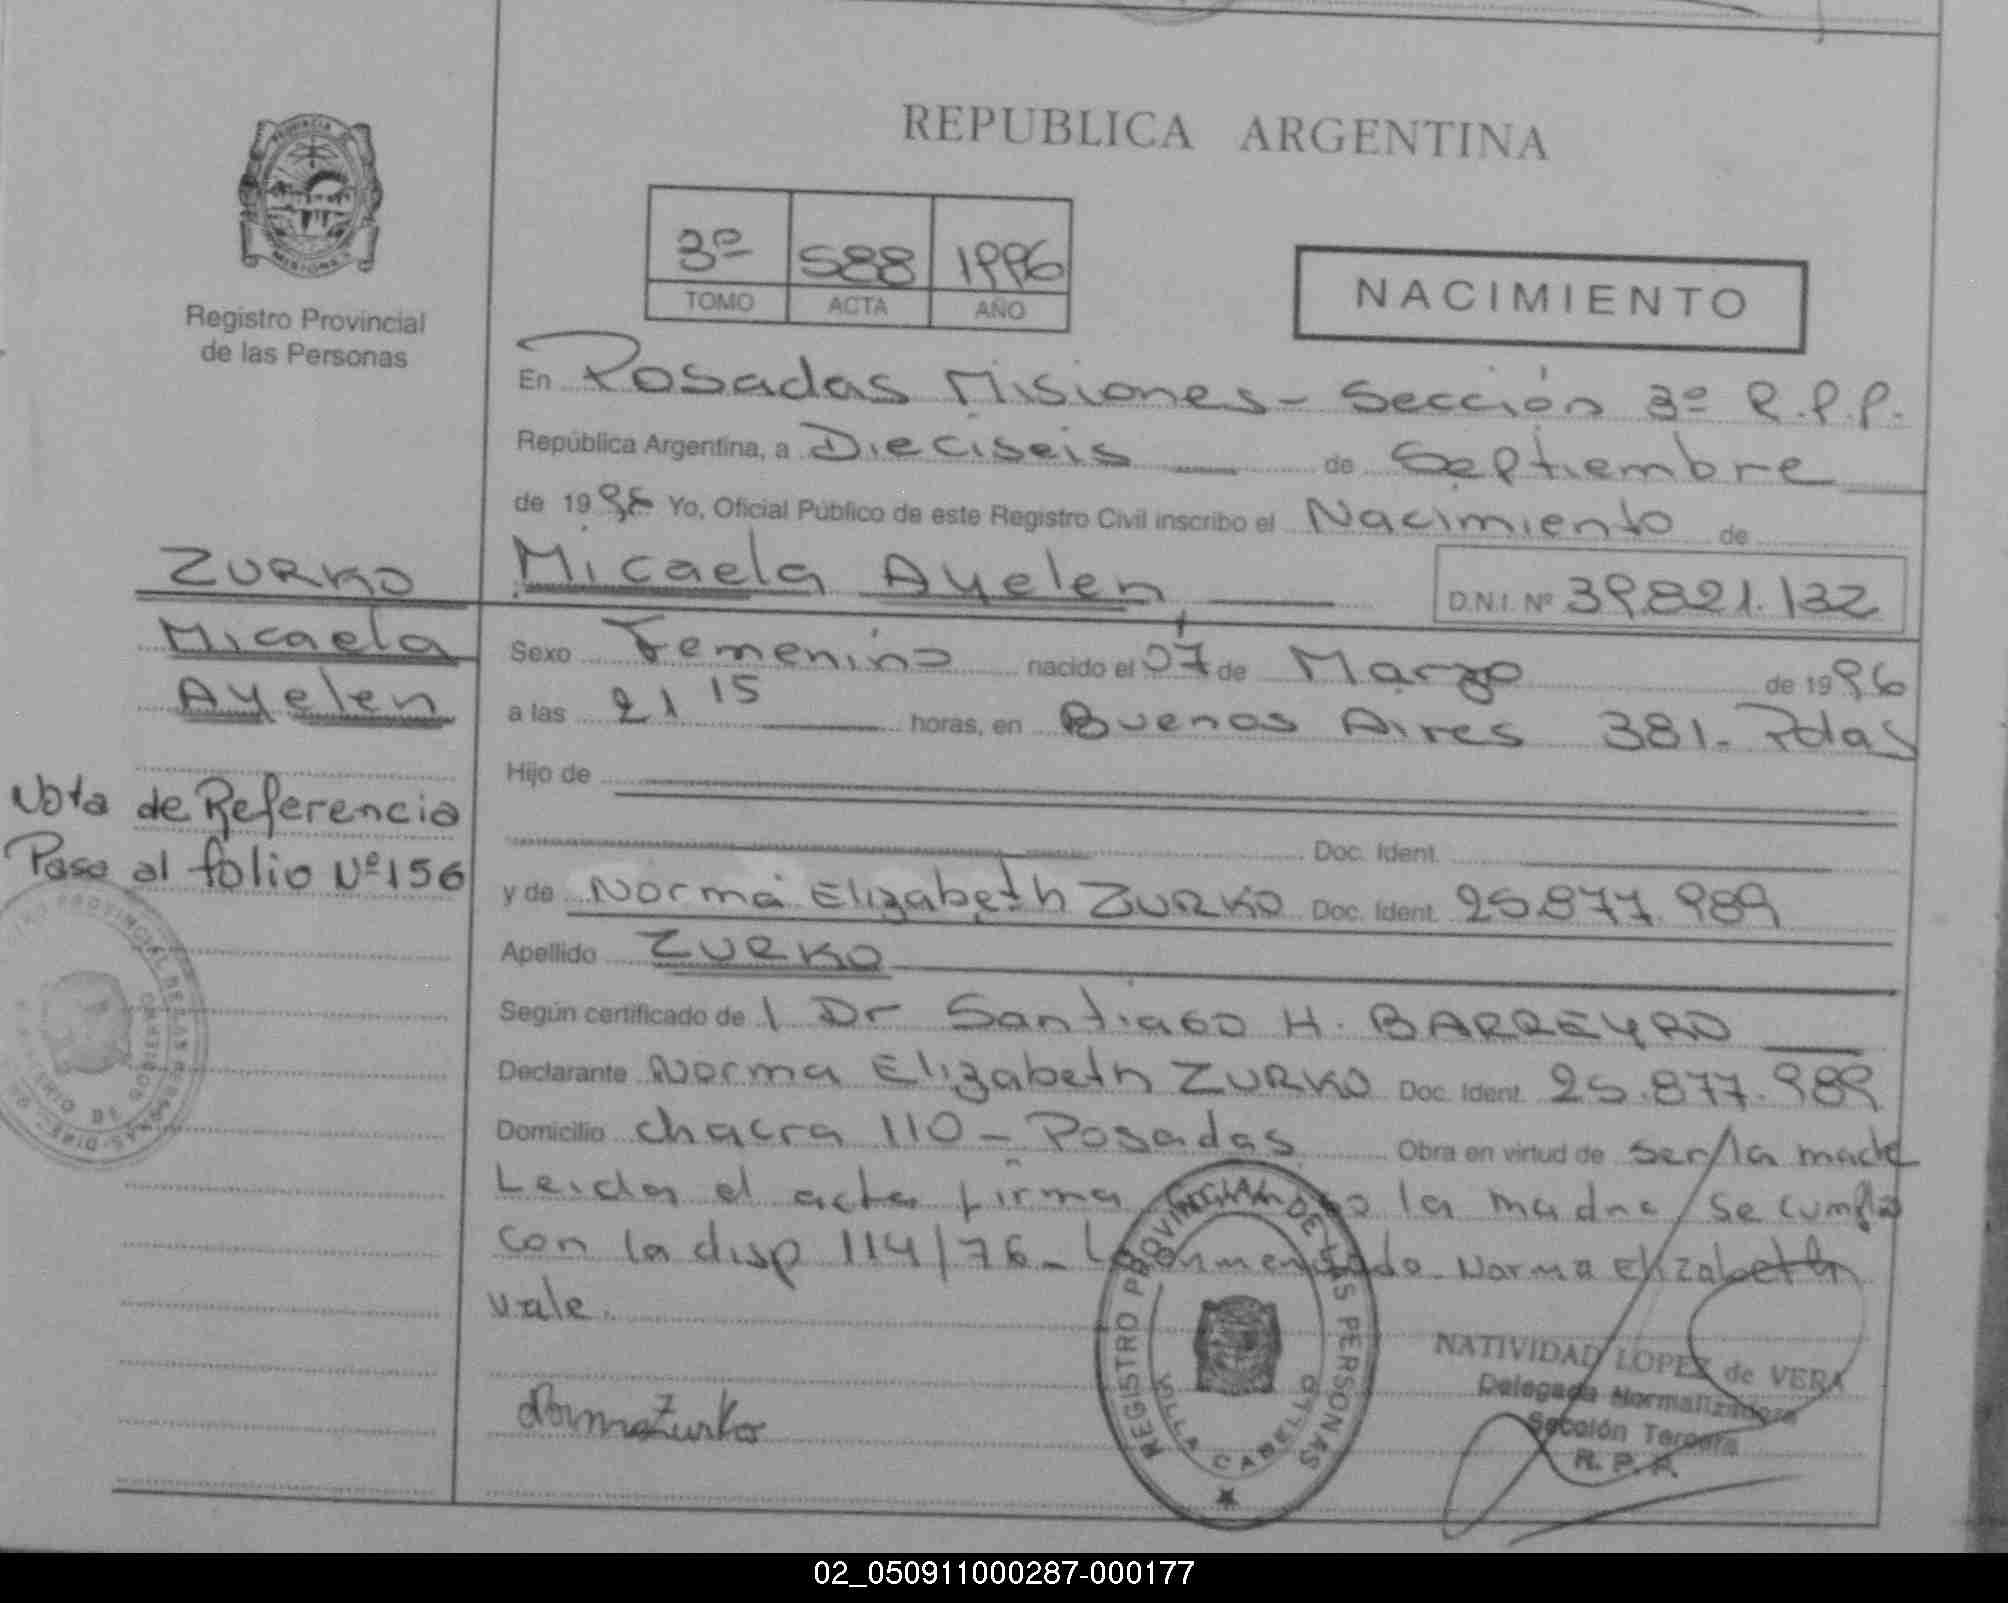 REPUBLICA ARGENTINA
PROVINCIA
MISIONES
Registro Provincial
de las Personas
3º 588 1996
TOMO ACTA AÑO
NACIMIENTO
En Posadas Misiones - Sección 3º R.P.P.
República Argentina, a Dieciseis de Septiembre
de 19 96 Yo, Oficial Público de este Registro Civil inscribo el Nacimiento de
Micaela Ayelen D.N.I. Nº 39.821.132
ZURKO
Micaela
Ayelen
Nota de Referencia
Pase al folio Nº 156
Sexo Femenino nacido el 07 de Marzo de 1996
a las 21 15 horas, en Buenos Aires 381. Pdas
Hijo de
Doc. Ident.
y de Norma Elizabeth ZURKO Doc. Ident. 25.877.989
Apellido ZURKO
Según certificado de 1 Dr Santiago H. BARREYRO
Declarante Norma Elizabeth ZURKO Doc. Ident. 25.877.989
Domicilio chacra 110 - Posadas Obra en virtud de ser la madre
Leida el acta firma la madre se cumplio
con la disp 114/76 - Norma Elizabeth
vale.
Norma Zurko
REGISTRO PROVINCIAL DE LAS PERSONAS
VILLA CABELLO
NATIVIDAD LOPEZ de VERA
Delegada Normalizadora
Sección Tercera
R. P. P.
02_050911000287-000177